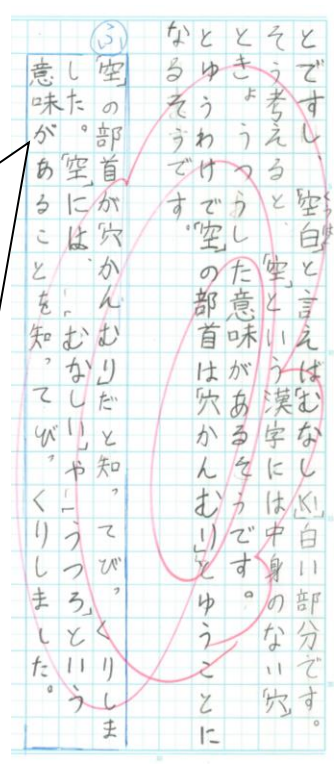 とですし、「空白」と言えば「むなしく」白い部分です。
そう考えると、「空」という漢字には中身のない「穴」
ときょうつうした意味があるそうです。
とゆうわけで「空」の部首は「穴かんむり」とゆうことに
なるそうです。
ふ
「空」の部首が穴かんむりだと知ってびっくりしま
した。「空」には、「むなしい」や「うつろ」という
意味があることを知ってびっくりしました。